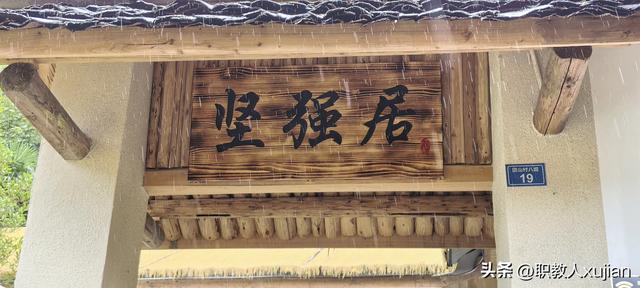 坚强居
19
头条 @职教人xujian